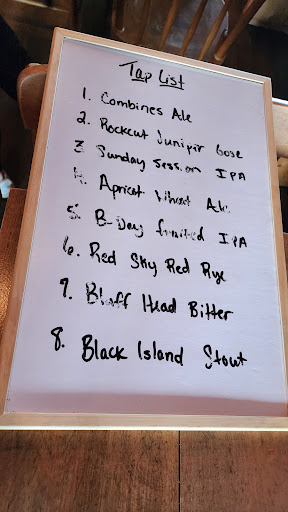 Tap List
1. Combines Ale
2. Rockcut Junipir Gose
3. Sunday Session IPA
4. Apricot Wheat Ale
5. B-Day fruited IPA
6. Red Sky Red Rye
7. Bluff Head Bitter
8. Black Island Stout